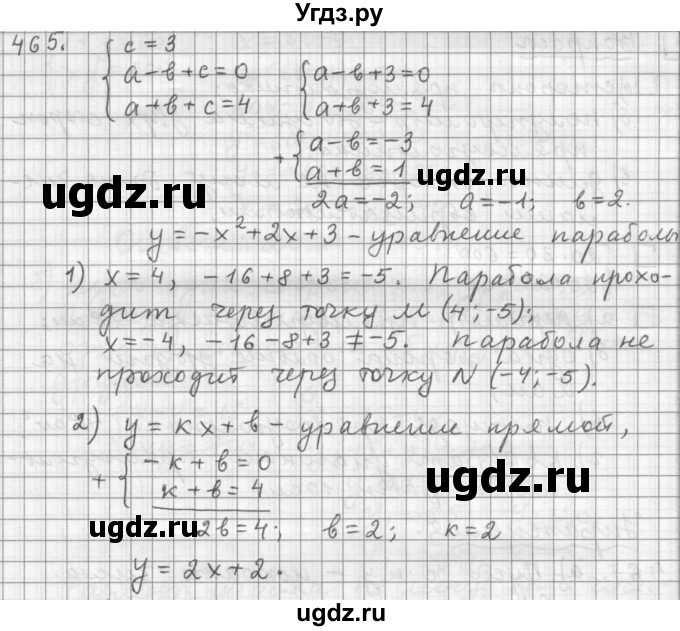 Угдз.ру
465. { c = 3
a – b + c = 0
a + b + c = 4
{ a – b + 3 = 0
a + b + 3 = 4
+ { a – b = –3
a + b = 1
2a = –2; a = –1; b = 2.
y = –x² + 2x + 3 – уравнение параболы
1) x = 4, –16 + 8 + 3 = –5. Парабола прохо-
дит через точку M (4; –5);
x = –4, –16 – 8 + 3 ≠ –5. Парабола не
проходит через точку N (–4; –5).
2) y = kx + b – уравнение прямой,
+ { –k + b = 0
k + b = 4
2b = 4; b = 2; k = 2
y = 2x + 2.
ugdz.ru
ugdz.ru
ugdz.ru
ugdz.ru
ugdz.ru